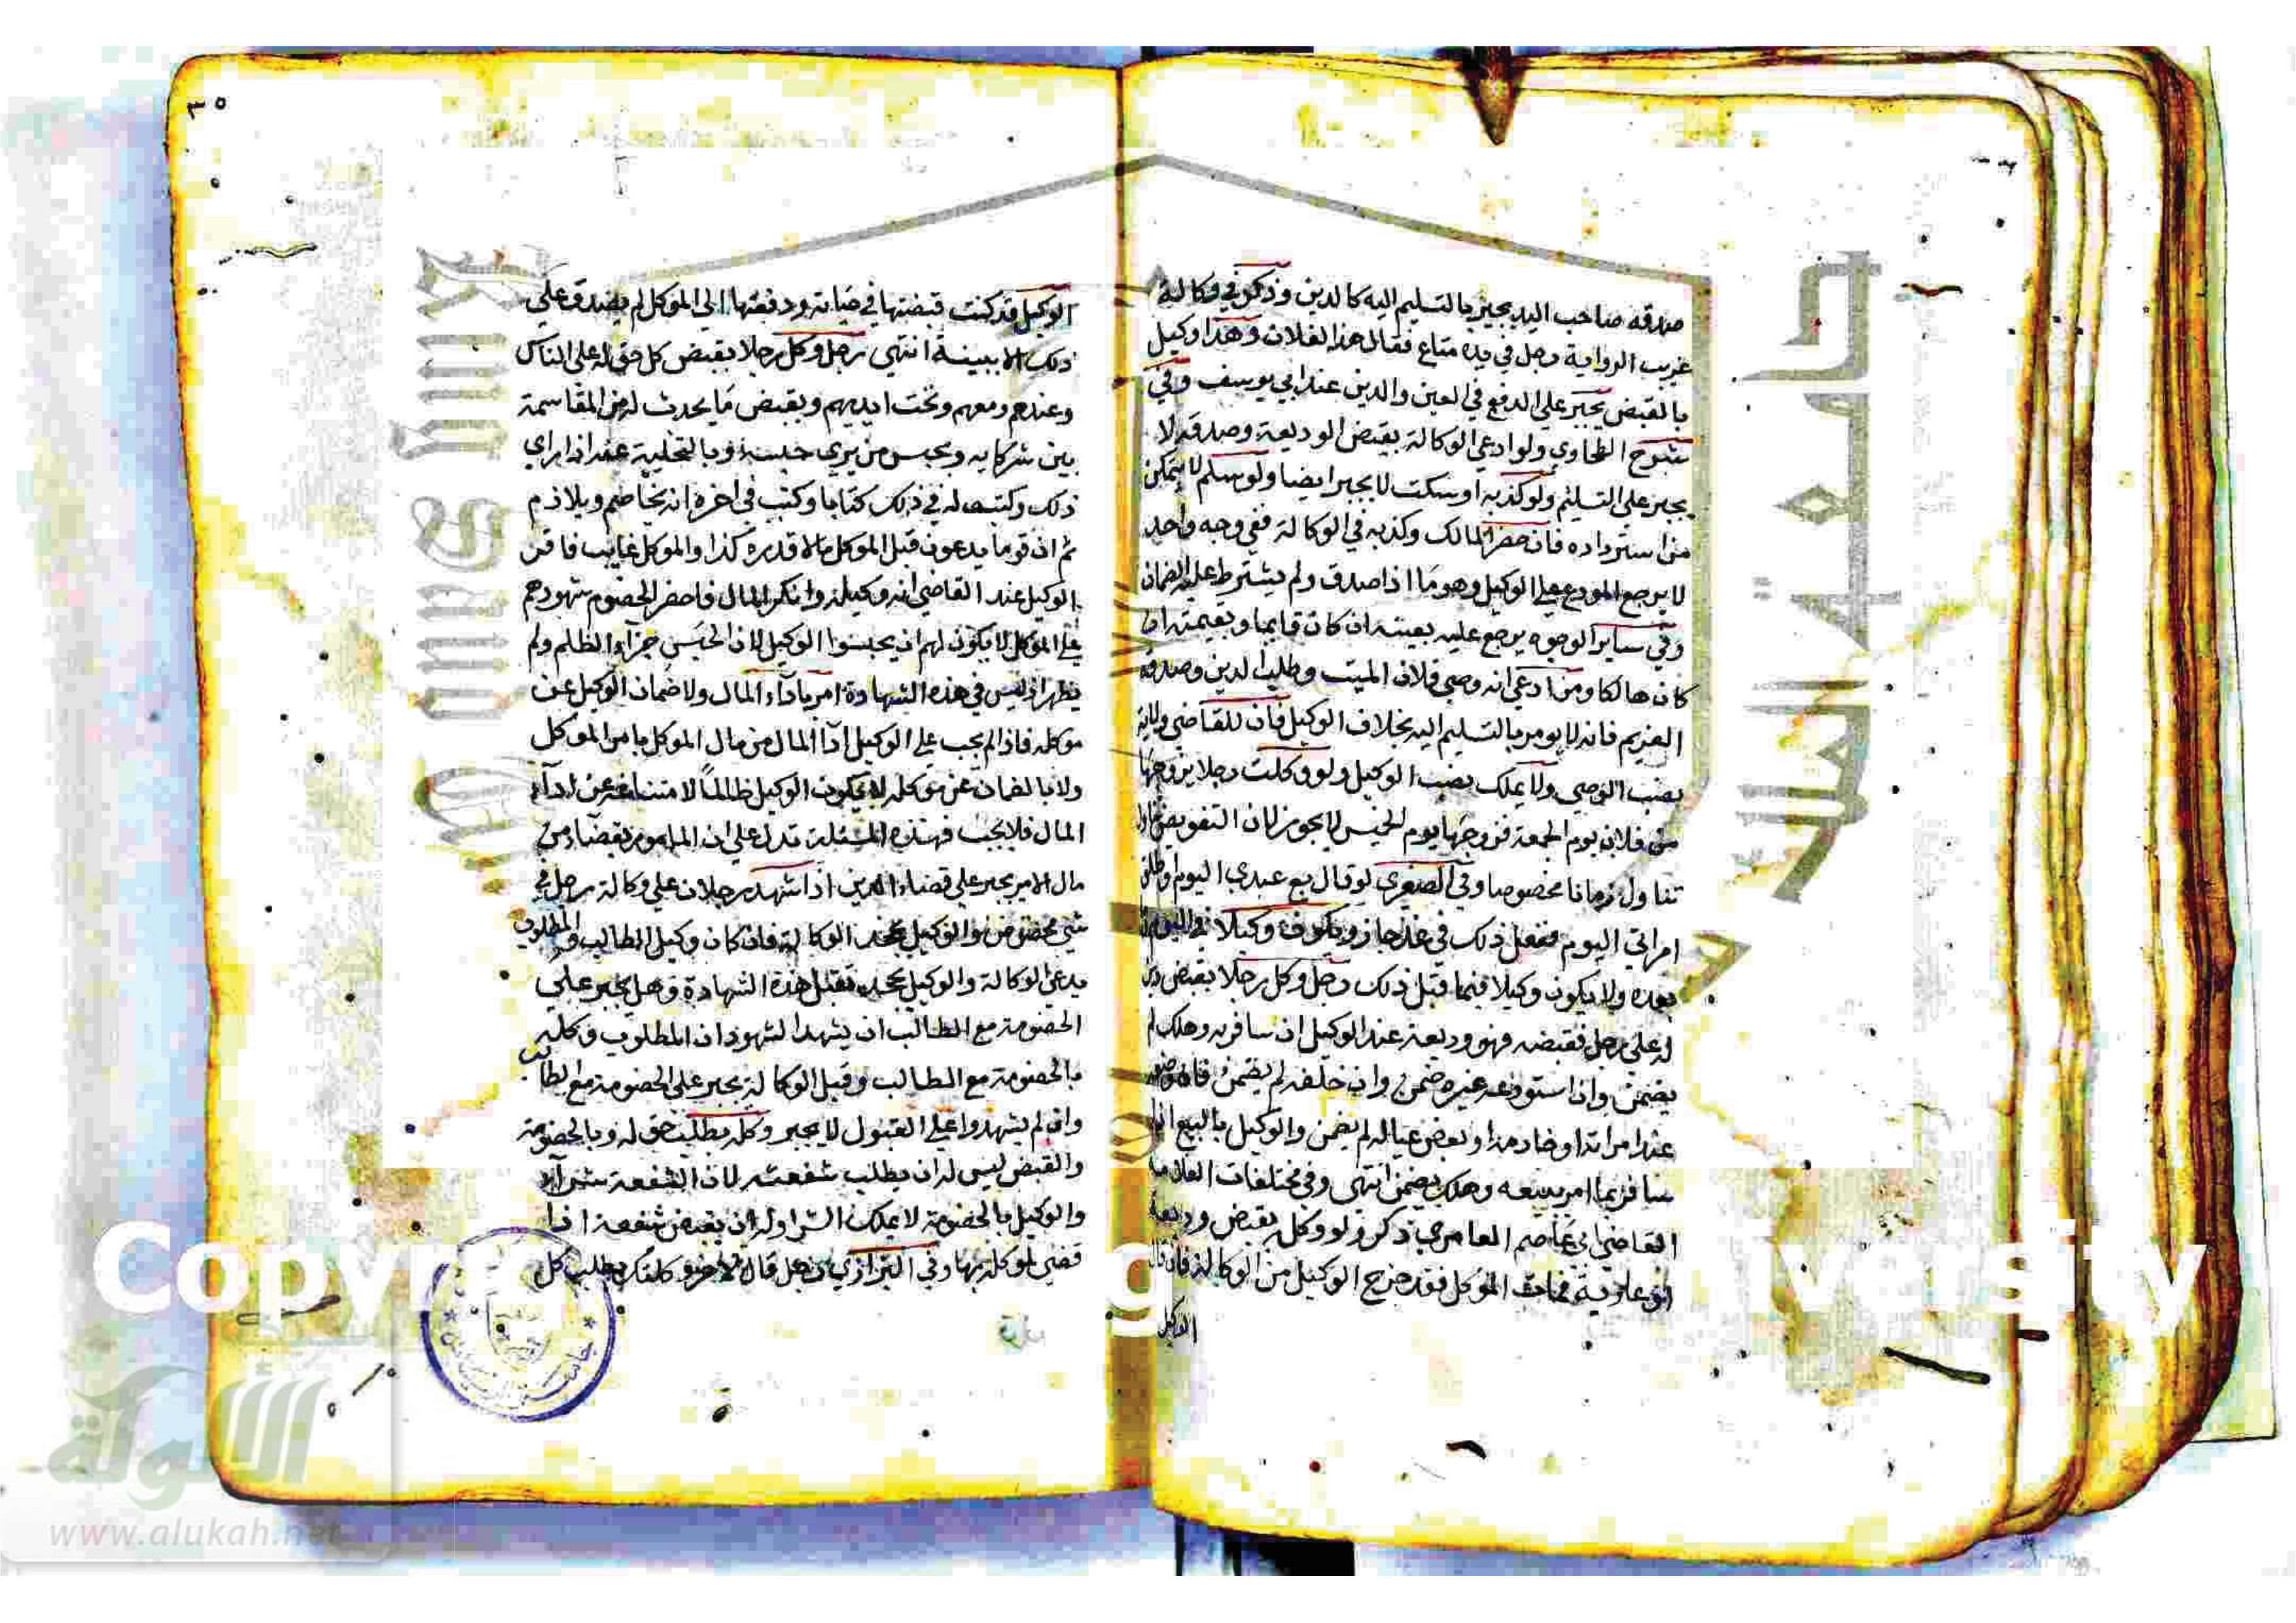 صدقه صاحب اليد يجبر بالتسليم اليه كالدين وذكر في وكالة
غريب الرواية رجل في يده متاع فقال هذا لفلان وهذا وكيل
بالقبض يجبر على الدفع في العين والدين عند ابي يوسف وفي
شرح الطحاوي ولو ادعى الوكالة بقبض الوديعة وصدقه لا
يجبر على التسليم ولو كذبه او سكت لا يجبر ايضا ولو سلم لا يتمكن
من استرداده فان حضر المالك وكذبه في الوكالة ففي وجه واحد
لا يرجع المودع على الوكيل وهو ما اذا صدق ولم يشترط عليه الضمان
وفي ساير الوجوه يرجع عليه بعينه ان كان قايما وبقيمته ان
كان هالكا ومن ادعى انه وصي فلان الميت وطلب الدين وصدقه
الغريم فانه لا يومر بالتسليم اليه بخلاف الوكيل فان للقاضي ولاية
نصب الوصي ولا يملك نصب الوكيل ولو وكلت رجلا يزوجها
من فلان يوم الجمعة فزوجها يوم الخميس لا يجوز لان التفويض
تناول زمانا مخصوصا وفي الصغرى لو قال بع عبدي اليوم وطلق
امراتي اليوم ففعل ذلك في غد جاز ويكون وكيلا في اليوم
بعده ولا يكون وكيلا فيما قبل ذلك رجل وكل رجلا بقبض دين
له على رجل فقبضه فهو وديعة عند الوكيل ان سافر به وهلك لم
يضمن وان استودعه غيره ضمن وان خلفه لم يضمن
عند امراته او خادمه او بعض عياله لم يضمن والوكيل بالبيع اذا
سافر بما امر ببيعه وهلك يضمن انتهى وفي مختلفات
القاضي ابي عاصم العامري ذكر ولو وكل بقبض وديعة
او عارية فمات الموكل فقد خرج الوكيل من الوكالة فان قال
الوكيل
٣٥
الوكيل قد كنت قبضتها في حياته ودفعتها الى الموكل لم يصدق على
ذلك الا ببينة انتهى رجل وكل رجلا بقبض كل حق له على الناس
وعندهم ومعهم وتحت ايديهم وبقبض ما يحدث له من المقاسمة
بين شركايه وبحبس من يرى حبسه وبالتخلية عنه اذا راى
ذلك وكتب له في ذلك كتابا وكتب في اخره انه يخاصم ويلازم
ثم ان قوما يدعون قبل الموكل مالا قدره كذا والموكل غايب فاقر
الوكيل عند القاضي انه وكيله وانكر المال فاحضر الخصوم شهودهم
على الموكل لا يكون لهم ان يحبسوا الوكيل لان الحبس جزاء الظلم ولم
يظهر اذ ليس في هذه الشهادة امر باداء المال ولا ضمان الوكيل عن
موكله فاذا لم يجب على الوكيل ادا المال من مال الموكل بامر الموكل
ولا بالضمان عن موكله لا يكون الوكيل ظالما لامتناعه عن اداء
المال فلا يجب فهذه المسئلة تدل على ان المامور بقضاء دين
مال الامر يجبر على قضاء الدين اذا شهد رجلان على وكالة رجل في
شي مخصوص والوكيل يجحد الوكالة فان كان وكيل الطالب والمطلوب
يدعي الوكالة والوكيل يجحد تقبل هذه الشهادة وهل يجبر على
الخصومة مع الطالب ان يشهدا لشهود ان المطلوب وكله
بالخصومة مع الطالب وقبل الوكالة يجبر على الخصومة مع الطالب
وان لم يشهدوا على القبول لا يجبر وكله بطلب حق له وبالخصومة
والقبض ليس له ان يطلب شفعته لان الشفعة شراء
والوكيل بالخصومة لا يملك الشرا وله ان يقبض شفعة اذا
قضى لموكله بها وفي البزازي رجل قال لاخر وكلتك بطلب كل
Copyr
g
iversity
جامعة الملك
الألوكة
www.alukah.net